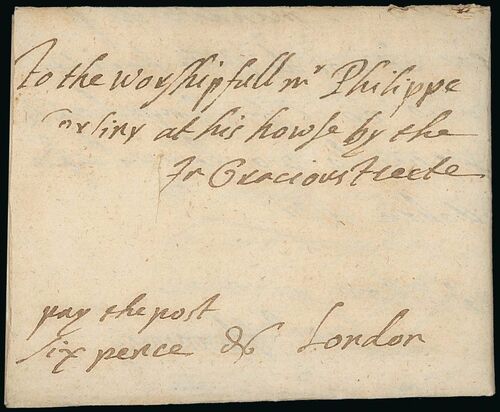 to the worshipfull mr Philippe
at his howse by the
In Gracious streete
pay the post
six pence d6 London